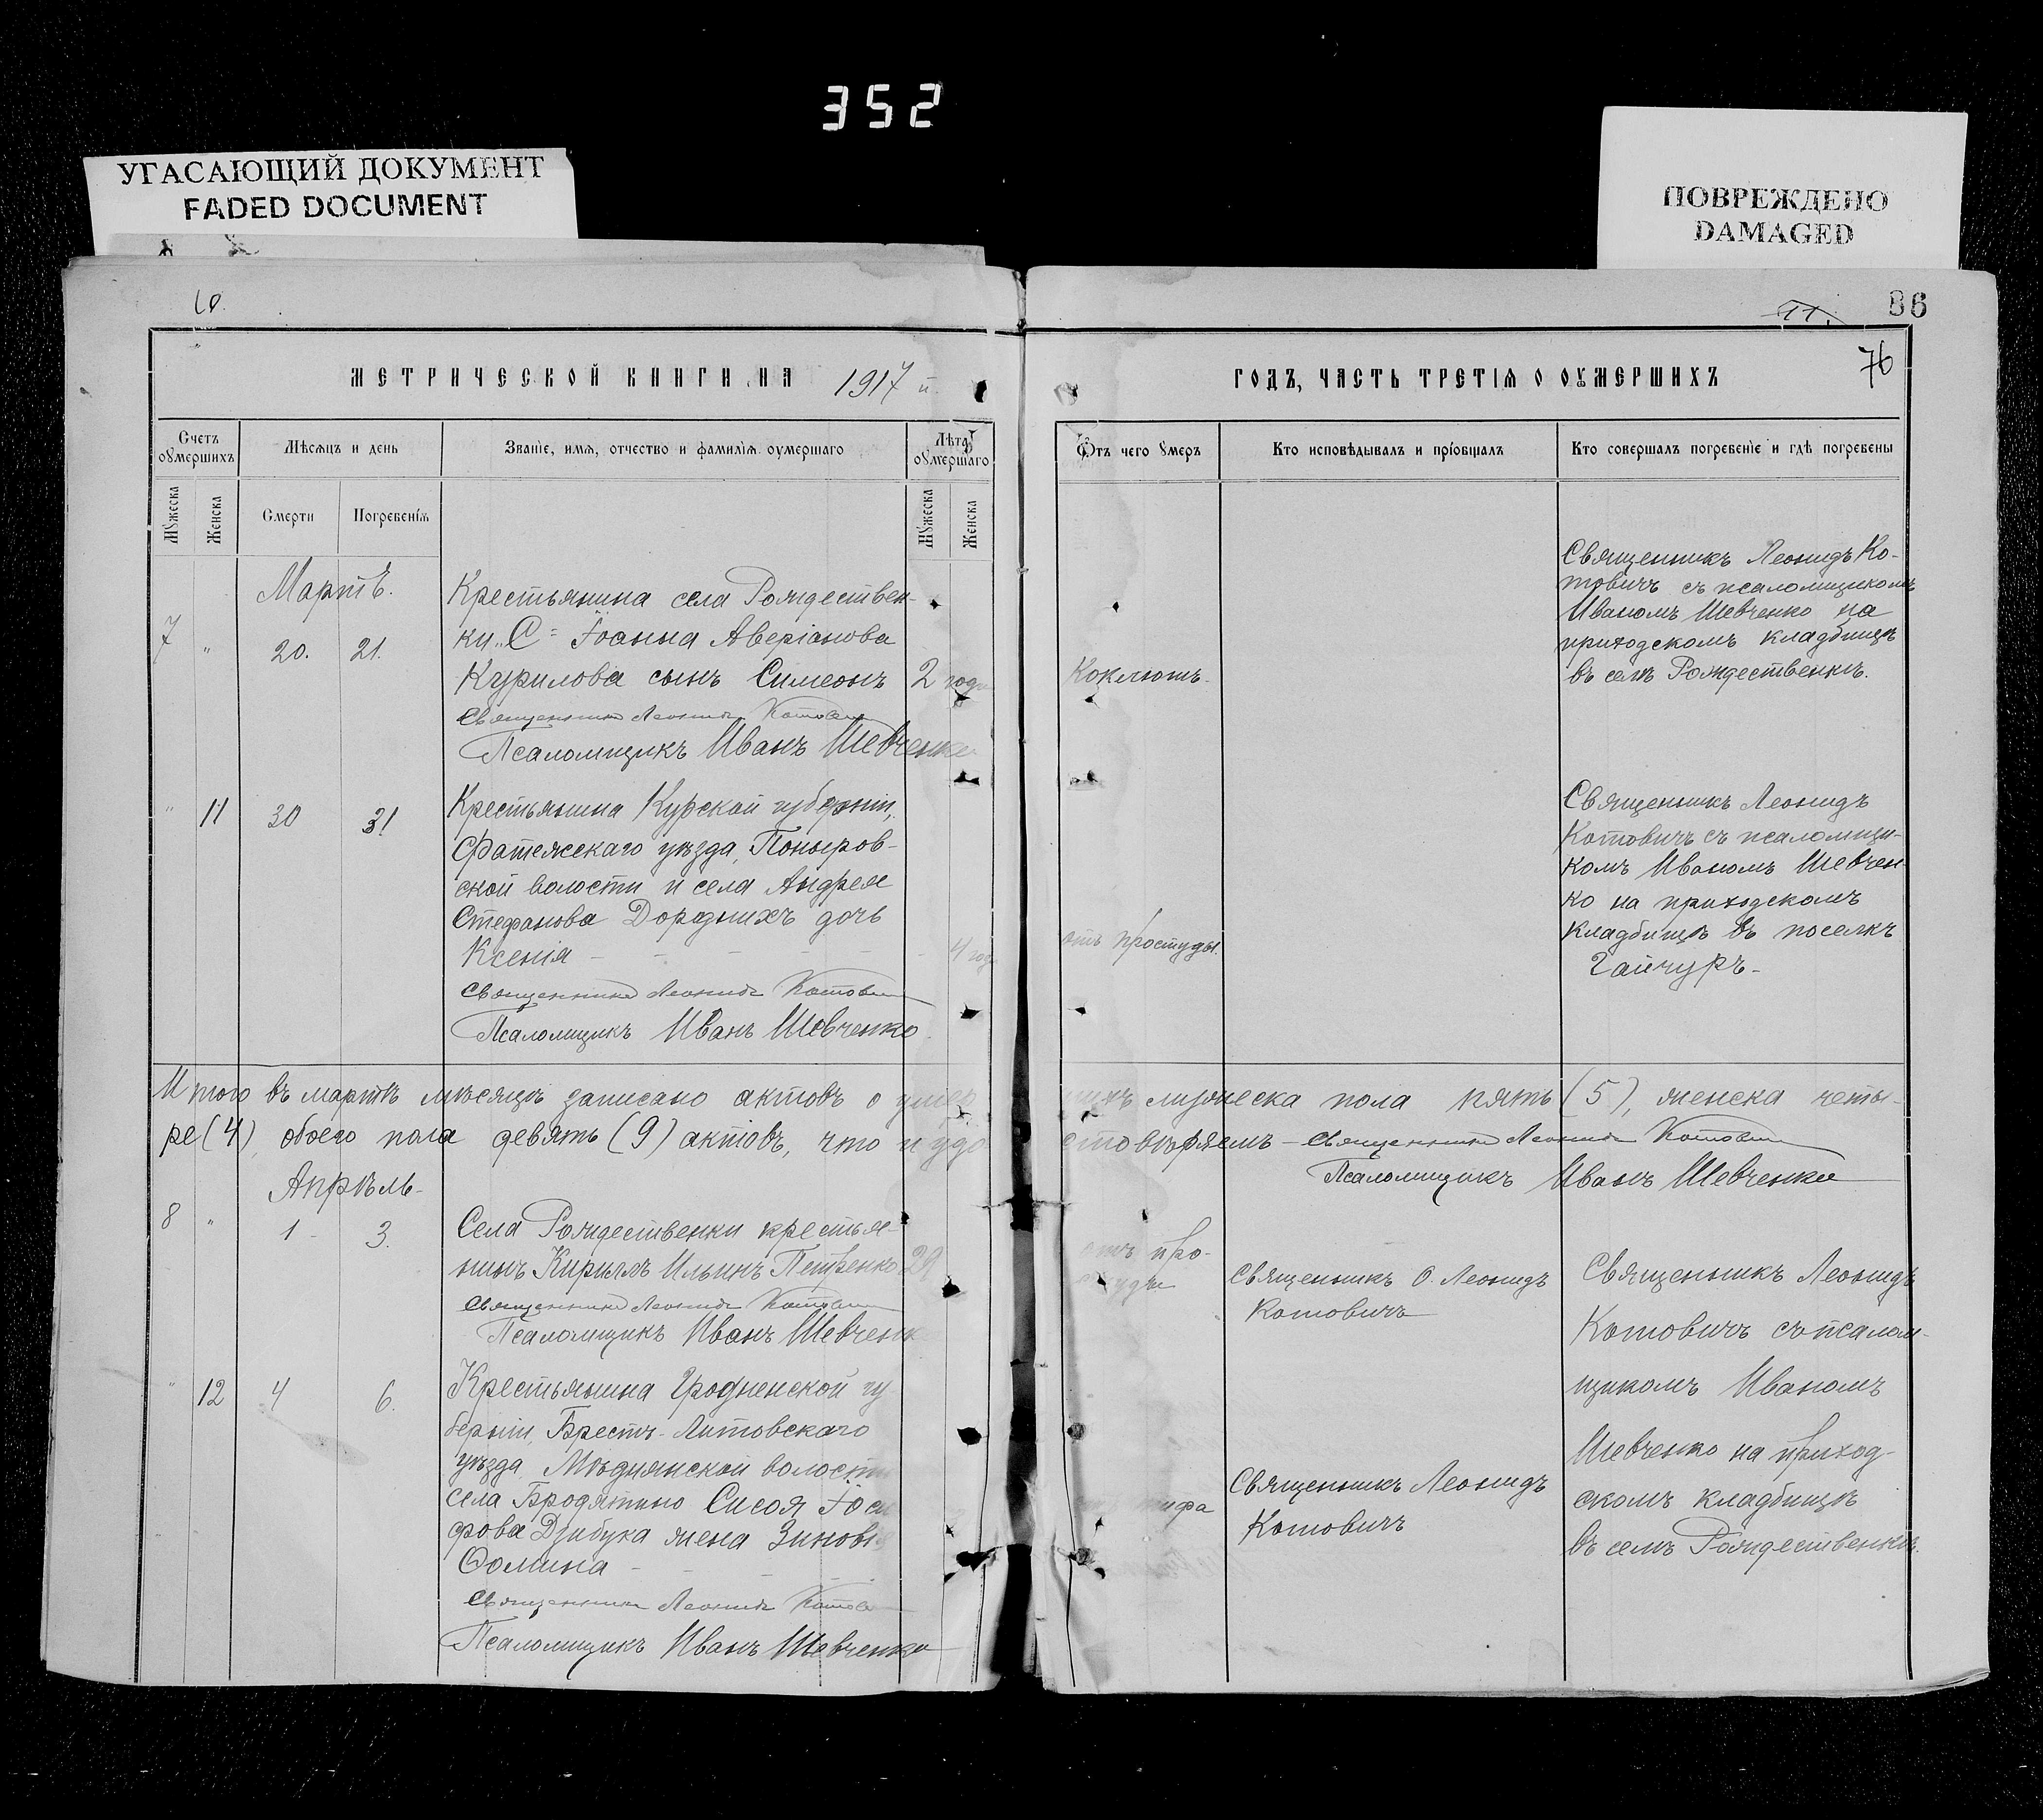 352
УГАСАЮЩИЙ ДОКУМЕНТ
FADED DOCUMENT
ПОВРЕЖДЕНО
DAMAGED
10.
11.
86
76
МЕТРИЧЕСКОЙ КНИГИ НА 1917 й
ГОДЪ, ЧАСТЬ ТРЕТІѦ О ОУМЕРШИХЪ
Счетъ оумершихъ
Мѣсѧцъ и день
Званіе, имѧ, отчество и фамиліѧ оумершаго
Лѣта оумершаго
Ѿтъ чего оумеръ
Кто исповѣдывалъ и пріобщалъ
Кто совершалъ погребеніе и гдѣ погребены
Мужеска
Женска
Смерти
Погребеніѧ
Мужеска
Женска
Мартъ.
7 " 20. 21.
Крестьянина села Рождествен-
ки " С = Іоанна Аверіанова
Курилова сынъ Симеонъ 2 года
Священникъ Леонидъ Котович
Псаломщикъ Иванъ Шевченко
Коклюшъ.
Священникъ Леонидъ Ко-
товичъ съ псаломщикомъ
Иваномъ Шевченко на
приходскомъ кладбищѣ
въ селѣ Рождественкѣ.
" 11 30 31
Крестьянина Курской губерніи,
Фатежскаго уѣзда, Поныров-
ской волости и села Андрея
Стефанова Дородныхъ дочь
Ксенія 4 год
Священникъ Леонидъ Котович
Псаломщикъ Иванъ Шевченко
отъ простуды.
Священникъ Леонидъ
Котовичъ съ псаломщи-
комъ Иваномъ Шевчен-
ко на приходскомъ
кладбищѣ въ поселкѣ
Гайчуръ-
Итого въ мартѣ мѣсяцѣ записано актовъ о умер
шихъ мужеска пола пять (5), женска четы-
ре (4), обоего пола девять (9) актовъ, что и удо
стовѣряемъ - Священникъ Леонидъ Котович
Псаломщикъ Иванъ Шевченко
Апрѣль-
8 " 1 - 3.
Села Рождественки крестья-
нинъ Кириллъ Ильинъ Петренко 29
Священникъ Леонидъ Котович
Псаломщикъ Иванъ Шевченк
отъ про-
студы
Священникъ О. Леонидъ
Котовичъ
Священникъ Леонидъ
Котовичъ съ псалом-
щикомъ Иваномъ
Шевченко на приход-
скомъ кладбищѣ
въ селѣ Рождественкѣ.
" 12 4 6.
Крестьянина Гродненской гу
берніи, Брестъ-Литовскаго
уѣзда, Мѣднянской волости
села Бродятино Сисоя Іоси
фова Дзибука жена Зиновія
Ѳомина
Священникъ Леонидъ Котов
Псаломщикъ Иванъ Шевченко
ифа
Священникъ Леонидъ
Котовичъ